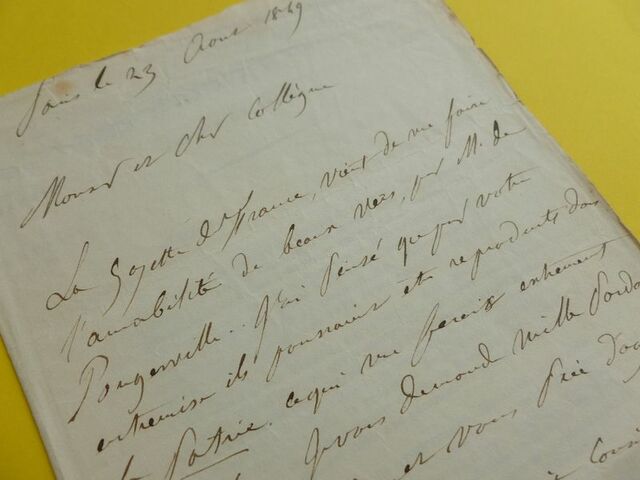 Paris le 23 Aout 1849
Monsr et Cher Collègue
La Gazette de France, vient de me faire
l'amabilité de beaux vers, par M. de
Pongerville.. J'ai pensé que par votre
entremise ils pourraient etre reproduits dans
la Patrie. ce qui me ferait extremement
Je vous demande mille pardons
et vous prie d'ag